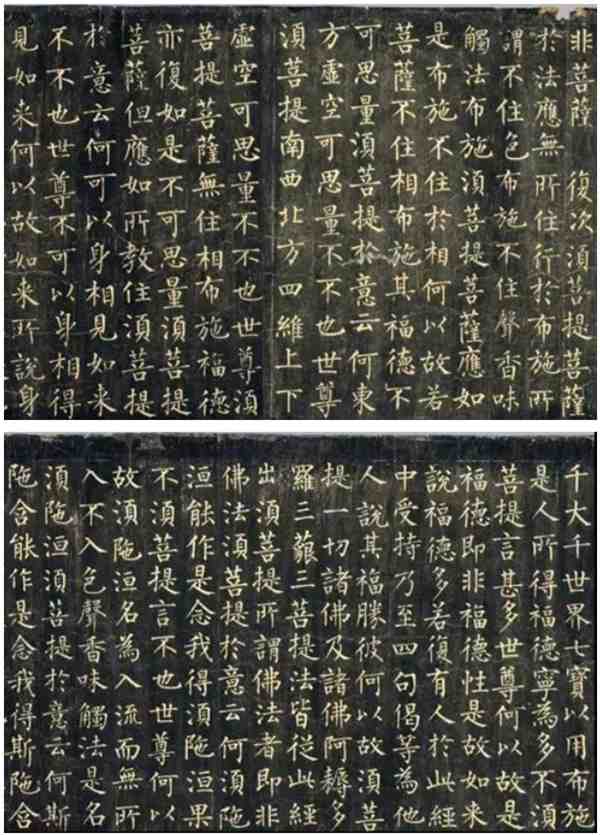 非菩薩 復次須菩提菩薩
於法應無所住行於布施所
謂不住色布施不住聲香味
觸法布施須菩提菩薩應如
是布施不住於相何以故若
菩薩不住相布施其福德不
可思量須菩提於意云何東
方虛空可思量不不也世尊
須菩提南西北方四維上下
虛空可思量不不也世尊須
菩提菩薩無住相布施福德
亦復如是不可思量須菩提
菩薩但應如所教住須菩提
於意云何可以身相見如来
不不也世尊不可以身相得
見如来何以故如来所說身
千大千世界七寶以用布施
是人所得福德寧為多不須
菩提言甚多世尊何以故是
福德即非福德性是故如来
說福德多若復有人於此經
中受持乃至四句偈等為他
人說其福勝彼何以故須菩
提一切諸佛及諸佛阿耨多
羅三藐三菩提法皆從此經
出須菩提所謂佛法者即非
佛法須菩提於意云何須陁
洹能作是念我得須陁洹果
不須菩提言不也世尊何以
故須陁洹名為入流而無所
入不入色聲香味觸法是名
須陁洹須菩提於意云何斯
陁含能作是念我得斯陁含